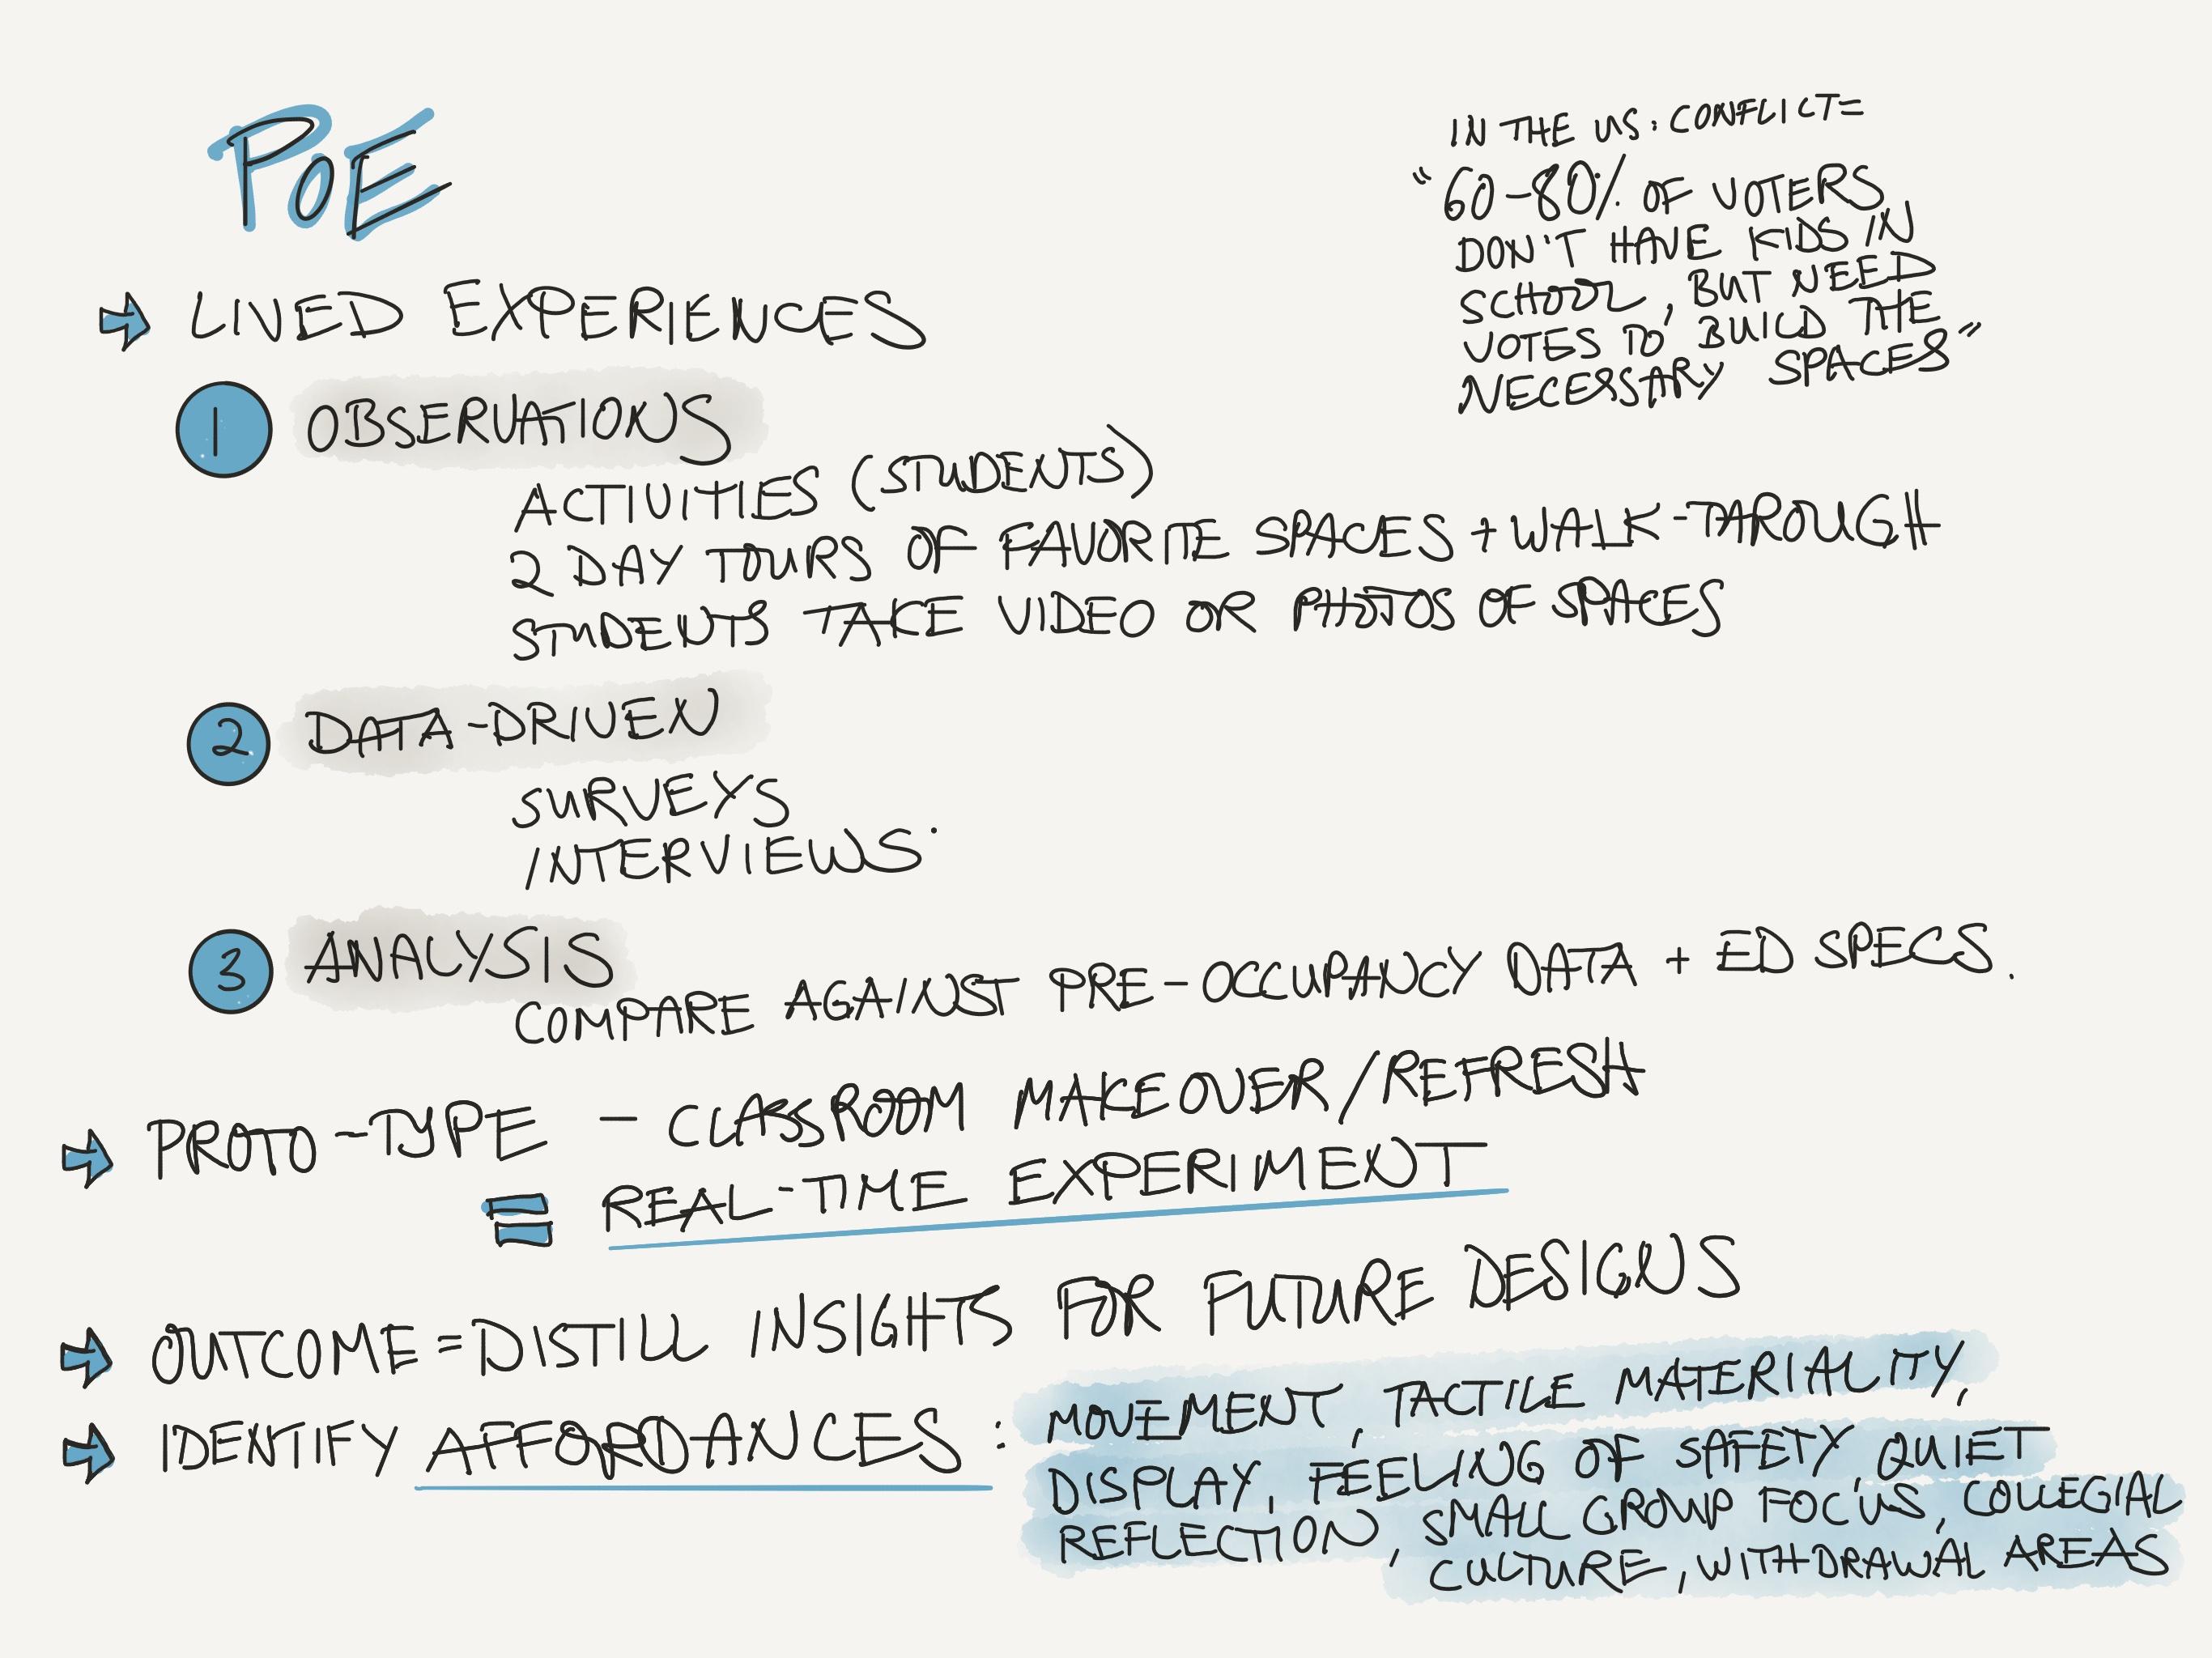 POE
IN THE US: CONFLICT=
"60-80% OF VOTERS
DON'T HAVE KIDS IN
SCHOOL, BUT NEED
VOTES TO BUILD THE
NECESSARY SPACES"
LIVED EXPERIENCES
1 OBSERVATIONS
ACTIVITIES (STUDENTS)
2 DAY TOURS OF FAVORITE SPACES + WALK-THROUGH
STUDENTS TAKE VIDEO OR PHOTOS OF SPACES
2 DATA-DRIVEN
SURVEYS
INTERVIEWS.
3 ANALYSIS
COMPARE AGAINST PRE-OCCUPANCY DATA + ED SPECS.
PROTO-TYPE - CLASSROOM MAKEOVER/REFRESH
= REAL-TIME EXPERIMENT
OUTCOME = DISTILL INSIGHTS FOR FUTURE DESIGNS
IDENTIFY AFFORDANCES: MOVEMENT, TACTILE MATERIALITY,
DISPLAY, FEELING OF SAFETY, QUIET
REFLECTION, SMALL GROUP FOCUS, COLLEGIAL
CULTURE, WITHDRAWAL AREAS